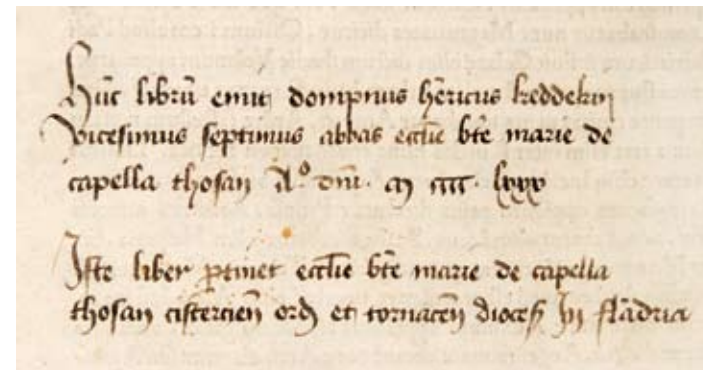 Hūc librū emit dompnus hēricus keddekin
vicesimus septimus abbas eccl̄ie btē marie de
capella thosan Aº dn̄i . m cccc . lxxx
Iste liber ꝑtinet eccl̄ie btē marie de capella
thosan cistercieñ ord̄ et tornaceñ dioces̄ In flādria